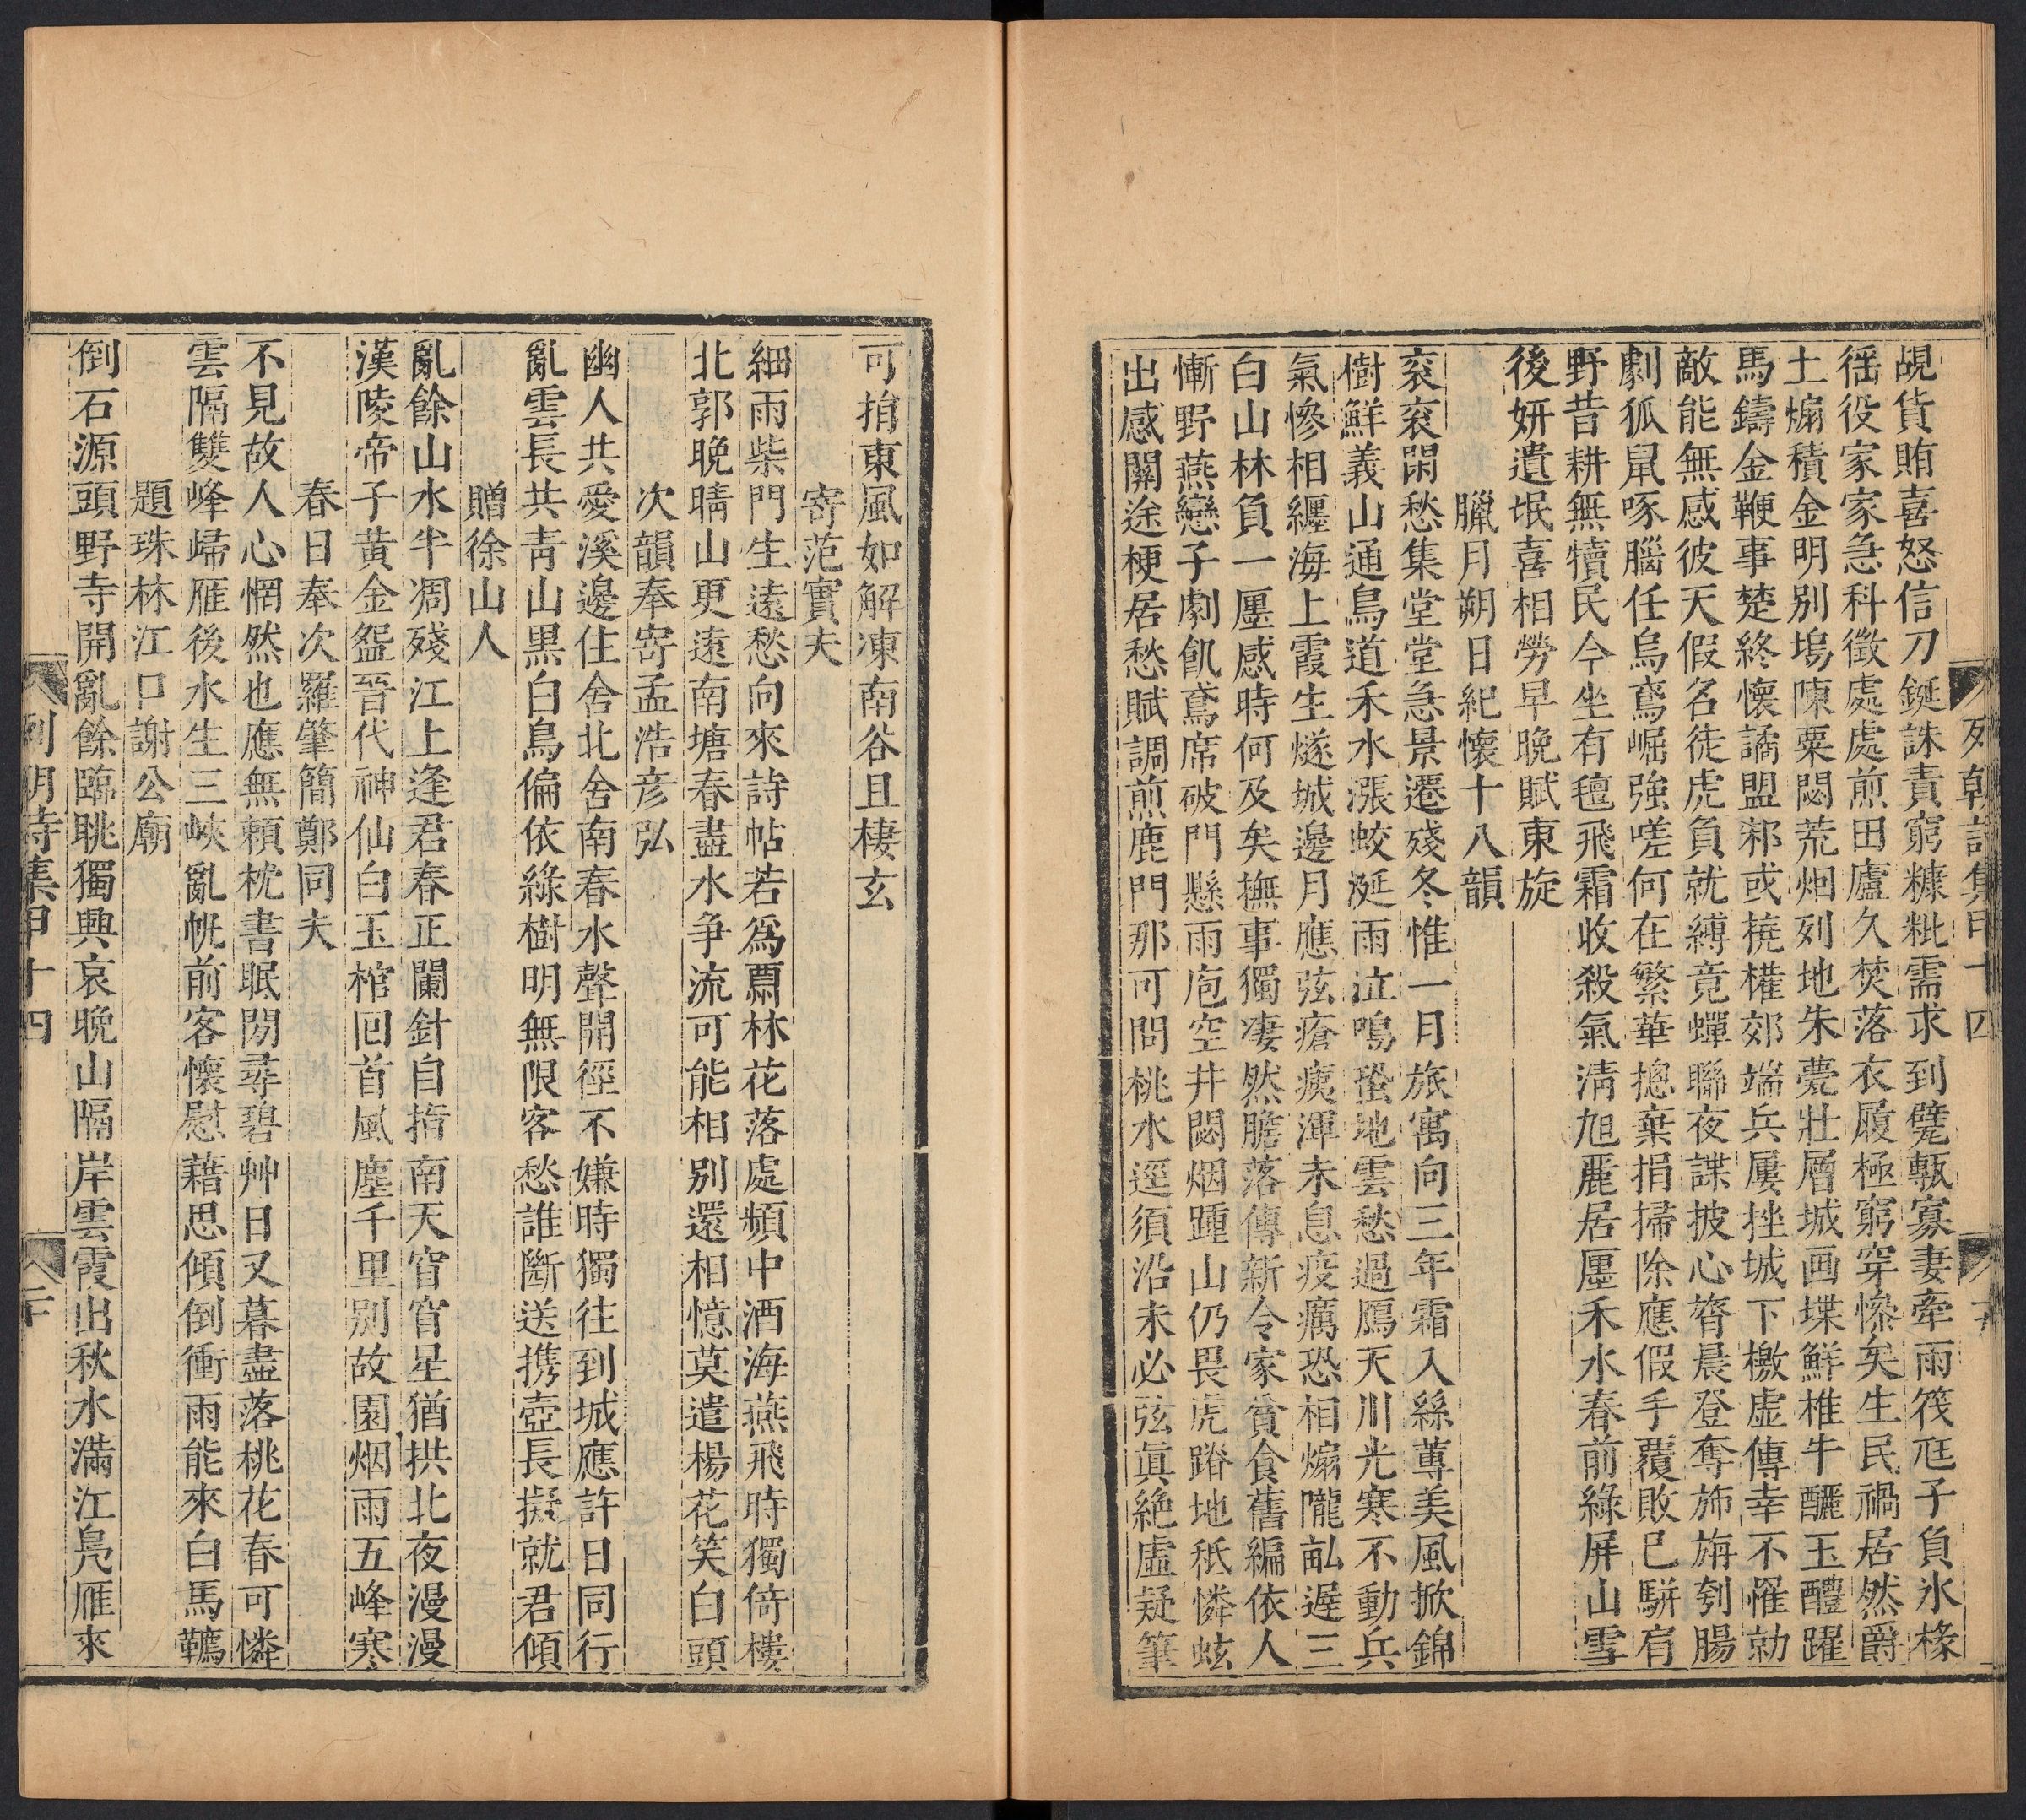 列朝詩集甲十四
覘貨賄喜怒信刀鋋誅責窮糠粃需求到甓甎寡妻牽雨筏尪子負氷椽
徭役家家急科徵處處煎田廬久焚落衣履極窮穿慘矣生民禍居然爵
土煽積金明别塢陳粟悶荒烟列地朱甍壯層城画堞鮮椎牛釃玉醴躍
馬鑄金鞭事楚終懷譎盟邾或撓權郊端兵屢挫城下檄虚傳幸不罹勍
敵能無感彼天假名徒虎負就縛竟蟬聯夜諜披心膂晨登奪斾旃刳腸
劇狐鼠啄腦任烏鳶崛強嗟何在繁華摠棄捐掃除應假手覆敗已駢肩
野昔耕無犢民今坐有氊飛霜收殺氣淸旭麗居廛禾水春前綠屏山雪
後妍遺氓喜相勞早晚賦東旋
臘月朔日紀懷十八韻
衮衮閑愁集堂堂急景遷殘冬惟一月旅寓向三年霜入絲蓴美風掀錦
樹鮮義山通鳥道禾水漲蛟涎雨泣鳴蛩地雲愁過鴈天川光寒不動兵
氣慘相纏海上霞生燧城邊月應弦瘡痍渾未息疫癘恐相煽隴畝遲三
白山林負一廛感時何及矣撫事獨凄然膽落傳新令家貧食舊編依人
慚野燕戀子劇飢鳶席破門懸雨庖空井閟烟踵山仍畏虎蹐地秪憐蚿
出感關途梗居愁賦調煎鹿門那可問桃水逕須沿未必弦眞絶虛疑筆
可捎東風如解凍南谷且棲玄
寄范實夫
細雨柴門生遠愁向來詩帖若爲酬林花落處頻中酒海燕飛時獨倚樓
北郭晚晴山更遠南塘春盡水争流可能相别還相憶莫遣楊花笑白頭
次韻奉寄孟浩彦弘
幽人共愛溪邊住舍北舍南春水聲開徑不嫌時獨往到城應許日同行
亂雲長共靑山黒白鳥偏依綠樹明無限客愁誰斷送携壺長擬就君傾
贈徐山人
亂餘山水半凋殘江上逢君春正闌針自指南天窅窅星猶拱北夜漫漫
漢陵帝子黄金盌晉代神仙白玉棺回首風塵千里别故園烟雨五峰寒
春日奉次羅肇簡鄭同夫
不見故人心惘然也應無賴枕書眠閒尋碧艸日又暮盡落桃花春可憐
雲隔雙峰歸雁後水生三峽亂帆前客懷慰藉思傾倒衝雨能來白馬韉
題珠林江口謝公廟
倒石源頭野寺開亂餘臨眺獨興哀晚山隔岸雲霞出秋水滿江鳬雁來
列朝詩集甲十四
二十